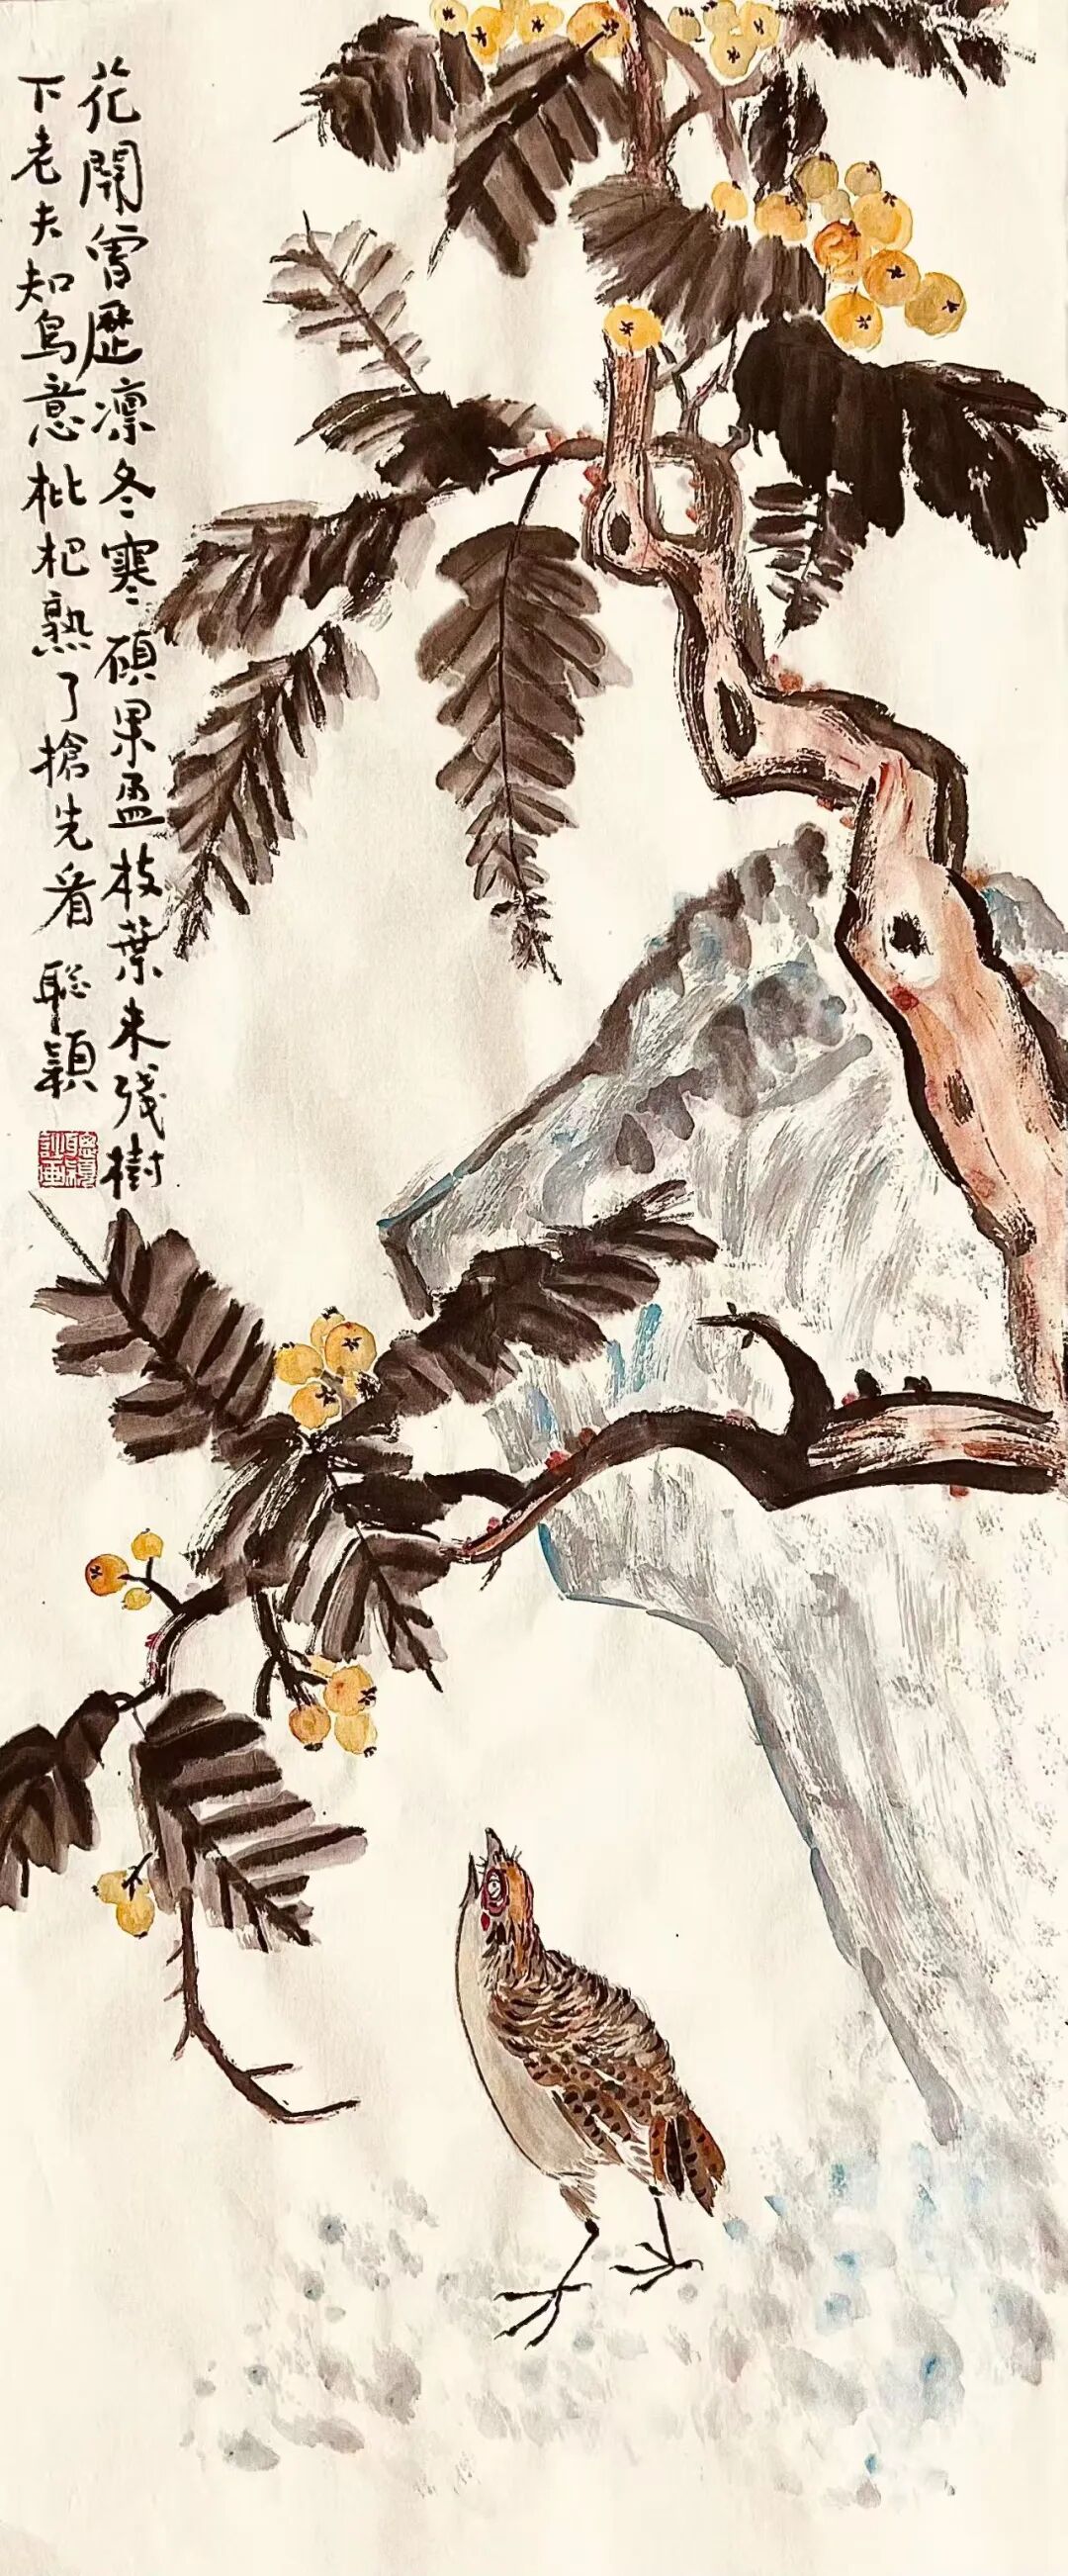 花開曾歷凛冬寒碩果盈枝葉未殘樹
下老夫知鳥意枇杷熟了搶先看 聪穎